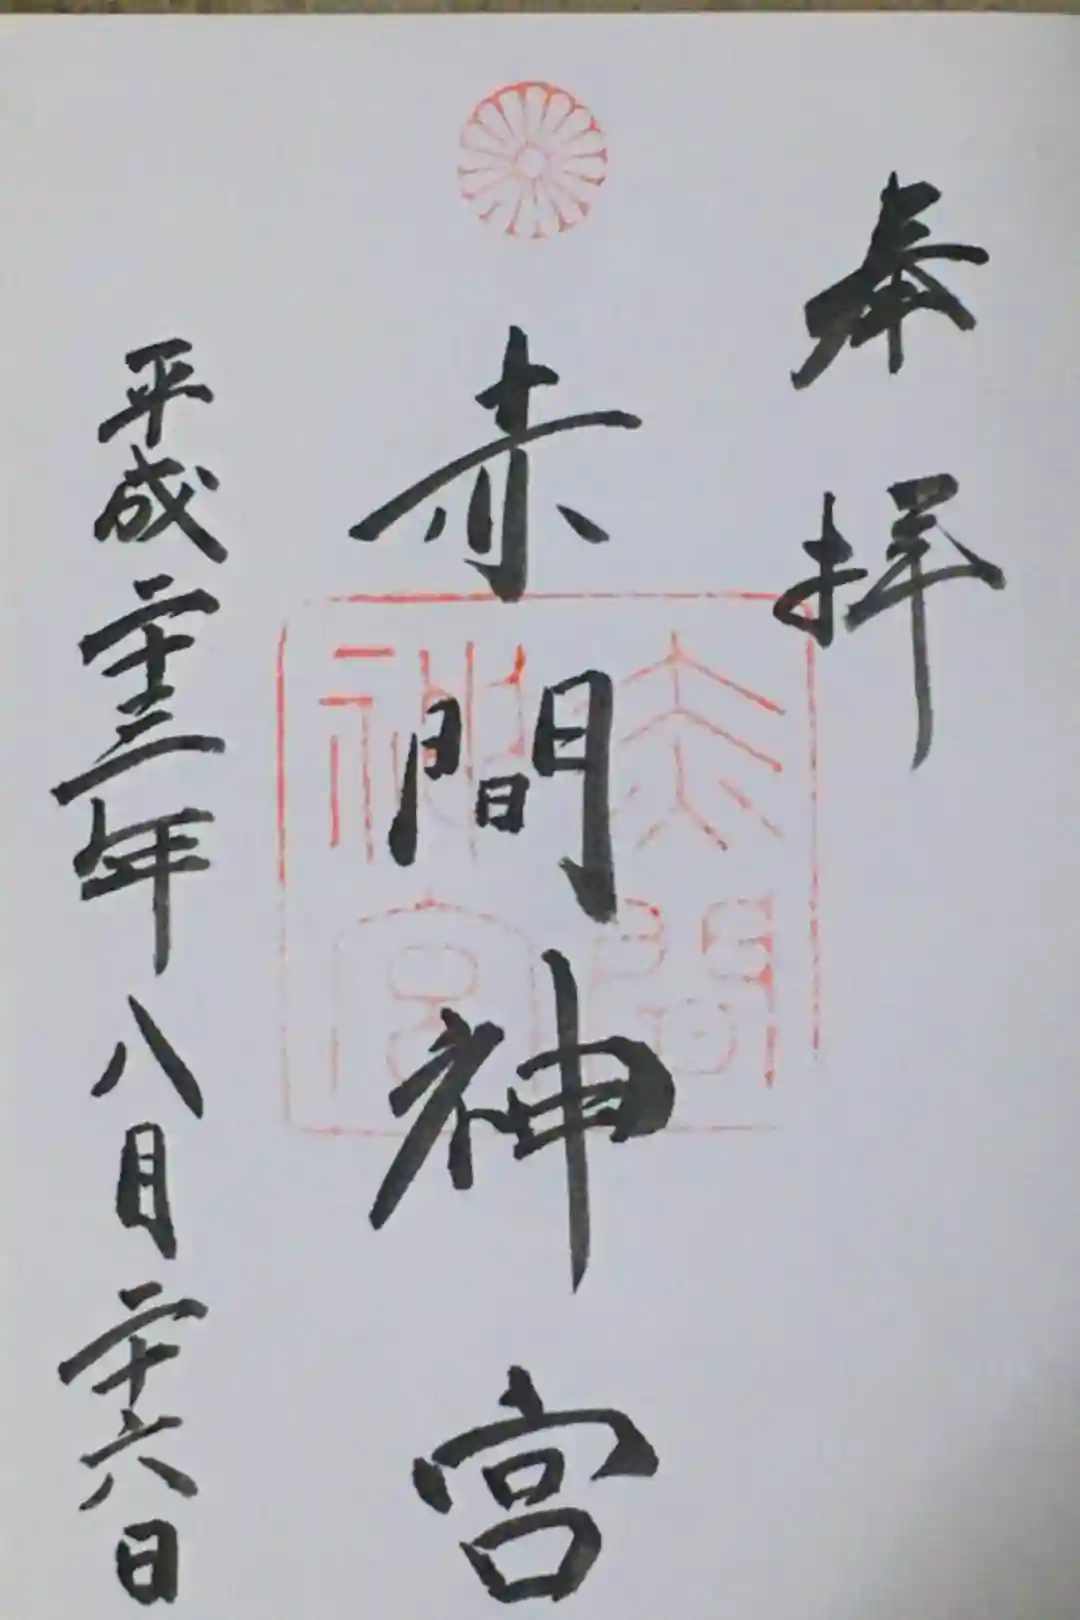 奉拝
赤間神宮
平成二十三年八月二十六日
赤間
神宮